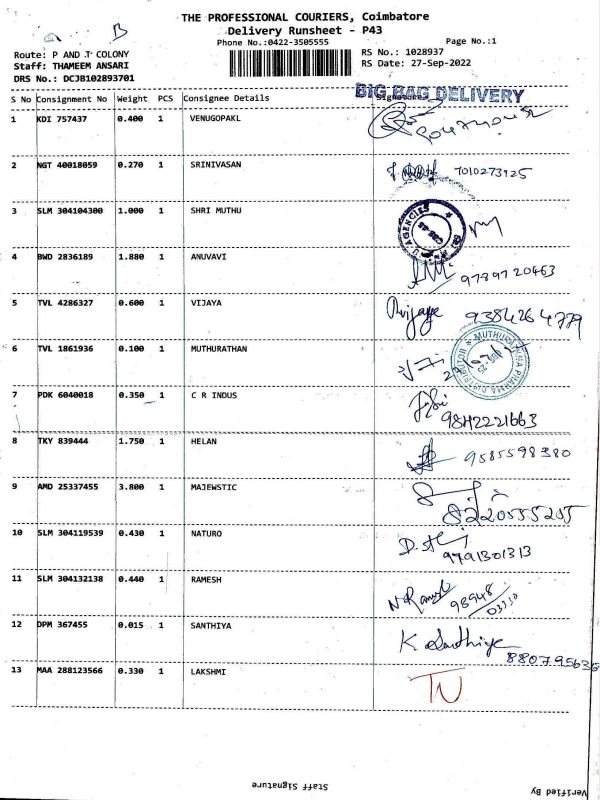 B
THE PROFESSIONAL COURIERS, Coimbatore
Delivery Runsheet - P43
Phone No.:0422-3505555
Page No.:1
Route: P AND T COLONY
RS No.: 1028937
Staff: THAMEEM ANSARI
RS Date: 27-Sep-2022
DRS No.: DCJB102893701
BIG BAG DELIVERY
S No Consignment No Weight PCS Consignee Details Signature
1 KDI 757437 0.400 1 VENUGOPAKL
2 NGT 40018059 0.270 1 SRINIVASAN 7010273925
3 SLM 304104300 1.000 1 SHRI MUTHU
AGENCIES
4 BWD 2836189 1.880 1 ANUVAVI 9789720463
5 TVL 4286327 0.600 1 VIJAYA Vijaya 9384264779
6 TVL 1861936 0.100 1 MUTHURATHAN
7 PDK 6040018 0.350 1 C R INDUS 9842221663
8 TKY 839444 1.750 1 HELAN 9585598380
9 AMD 25337455 3.800 1 MAJEWSTIC 8220555205
10 SLM 304119539 0.430 1 NATURO 9791301313
11 SLM 304132138 0.440 1 RAMESH N Ramesh 98948
03330
12 DPM 367455 0.015 1 SANTHIYA K Santhiya
880795636
13 MAA 288123566 0.330 1 LAKSHMI TN
Staff Signature
Verified By